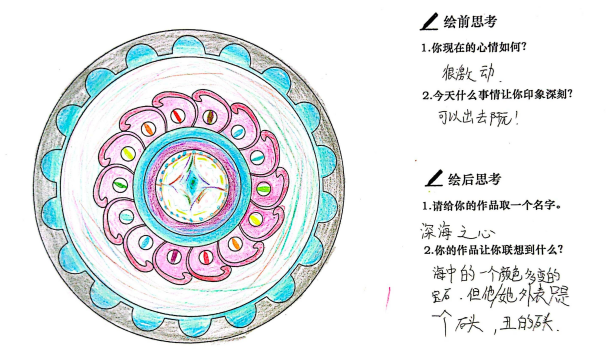 绘前思考
1.你现在的心情如何？
很激动.
2.今天什么事情让你印象深刻？
可以出去玩！
绘后思考
1.请给你的作品取一个名字。
深海之心
2.你的作品让你联想到什么？
海中的一个颜色多变的
宝石.但他/她外表只是
一个石头，丑的石头.